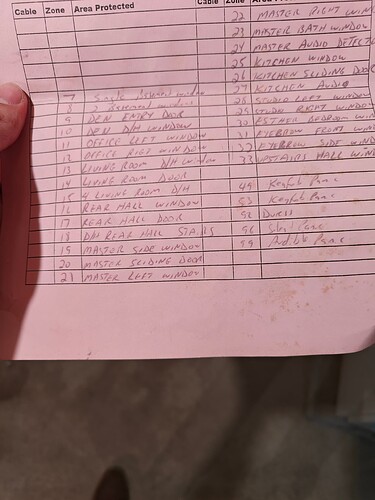 Cable Zone Area Protected Cable Zone
7 Single Basement window
8 2 Basement windows
9 DEN ENTRY DOOR
10 DEN D/H WINDOW
11 OFFICE LEFT WINDOW
12 OFFICE RIGT WINDOW
13 LIVING ROOM D/H WINDOW
14 LIVING ROOM DOOR
15 4 LIVING ROOM D/H
16 REAR HALL WINDOW
17 REAR HALL DOOR
18 D/H REAR HALL STAIRS
19 MASTER SIDE WINDOW
20 MASTER SLIDING DOOR
21 MASTER LEFT WINDOW
22 MASTER RIGHT WIN
23 MASTER BATH WINDOW
24 MASTER AUDIO DETECT
25 KITCHEN WINDOW
26 KITCHEN SLIDING DOOR
27 KITCHEN AUDIO
28 STUDIO LEFT WINDOW
29 STUDIO RIGHT WINDOW
30 ESTHER BEDROOM WIN
31 EYEBROW FRONT WIN
32 EYEBROW SIDE WIN
33 UPSTAIRS HALL WIN
49 Keyfob Panic
Keyfob Panic
92 Duress
Panic
99 Audible Panic